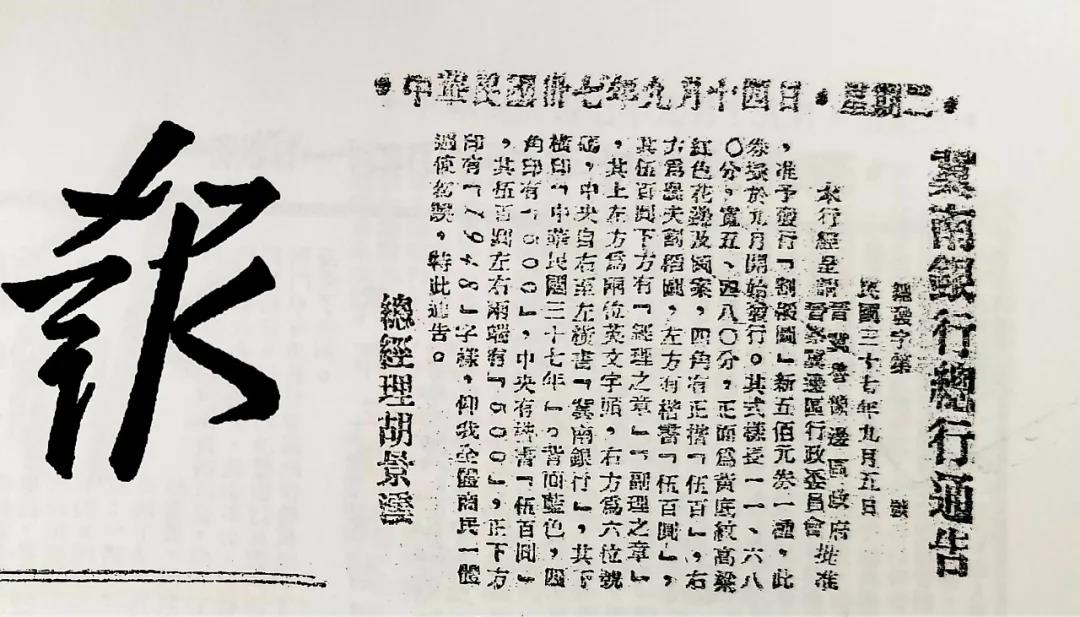 中華民國卅七年九月十四日·星期二·
報
冀南銀行總行通告
總發字第　號
民國三十七年九月五日
本行經呈請晉冀魯豫邊區政府
晉察冀邊區行政委員會批准
，准予發行「割稻圖」新五佰元券一種，此
券擬於九月開始發行。其式樣長一一、六八
〇分，寬五、四八〇分，正面爲黃底紋高粱
紅色花邊及圖案，四角有正楷「伍百」，右
方爲農夫割稻圖，左方有楷書「伍百圓」，
其伍百圓下方有「經理之章」「副理之章」
，其上左方爲兩位英文字頭，右方爲六位號
碼，中央自右至左橫書「冀南銀行」，其下
橫印「中華民國三十七年」。背面藍色，四
角印有「500」，中央有楷書「伍百圓」
，其伍百圓左右兩端有「500」，正下方
印有「1948」字樣，仰我全區商民一體
週使勿誤，特此通告。
總經理胡景澐